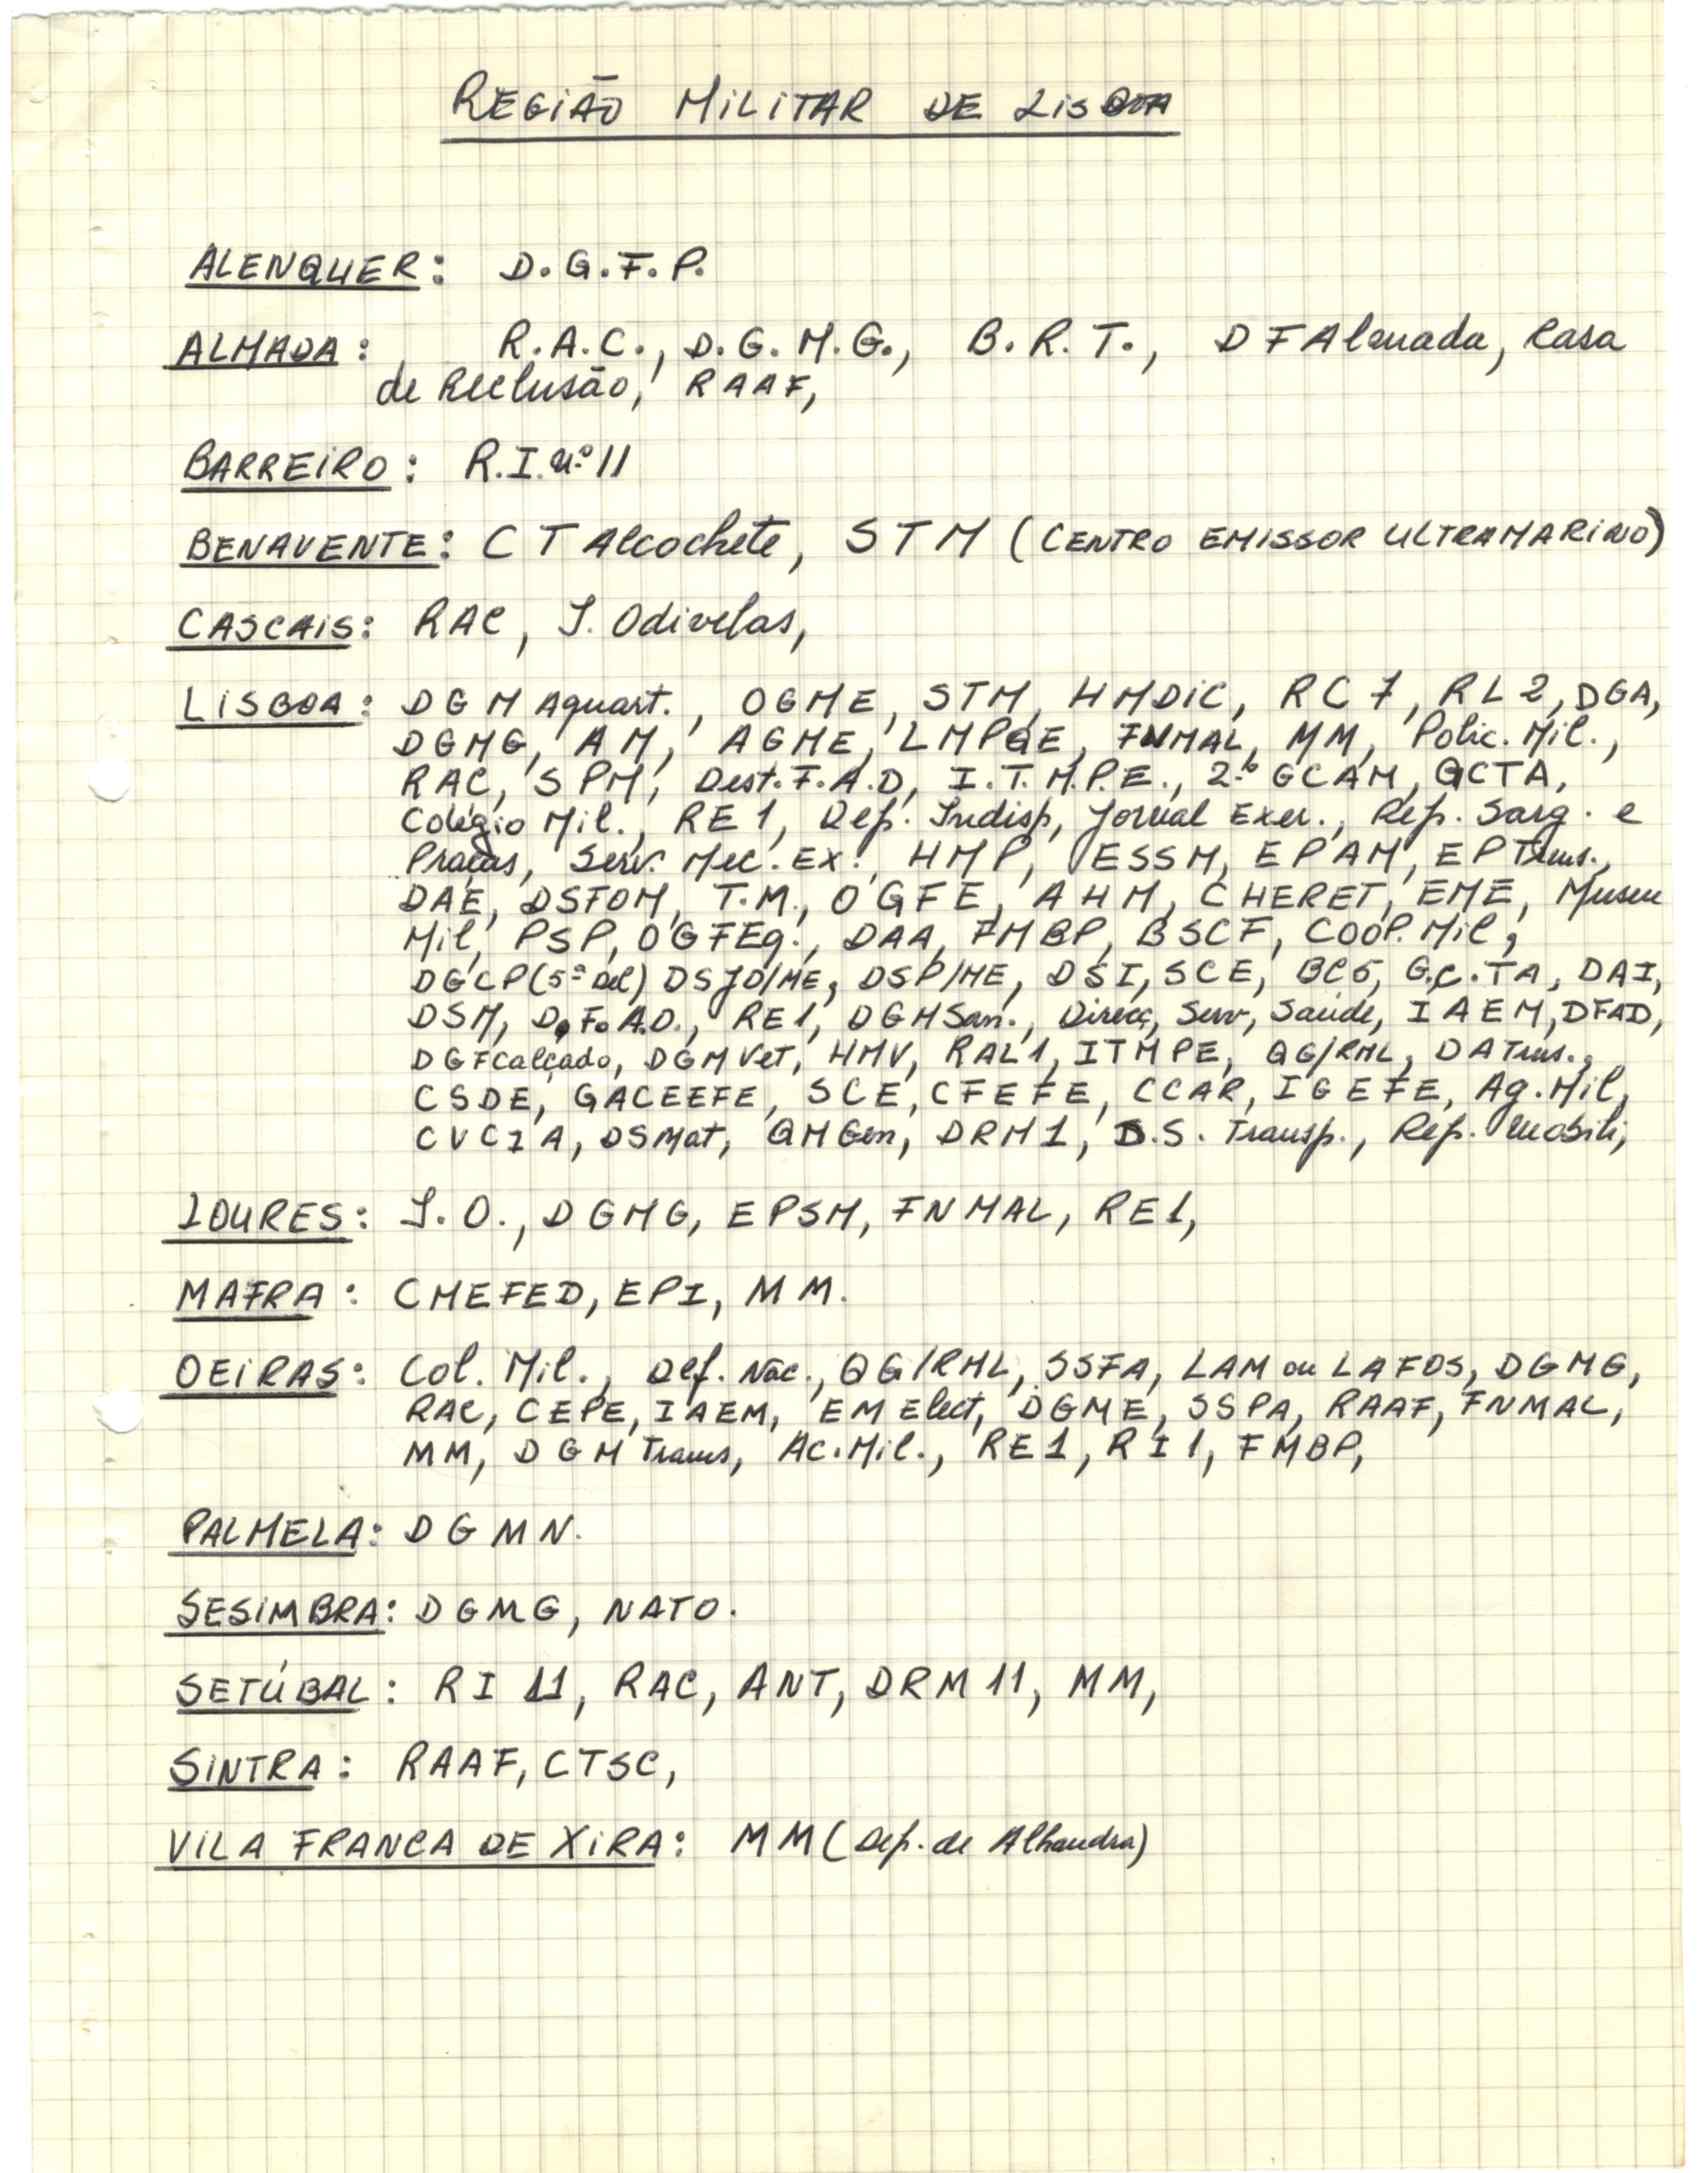 REGIÃO MILITAR DE LISBOA
ALENQUER: D.G.F.P.
ALMADA: R.A.C., D.G.M.G., B.R.T., DFAlmada, Casa
de Reclusão, RAAF,
BARREIRO: R.I. nº 11
BENAVENTE: CT Alcochete, STM (CENTRO EMISSOR ULTRAMARINO)
CASCAIS: RAC, I. Odivelas,
LISBOA: DGM Aquart., OGME, STM, HMDIC, RC7, RL2, DGA,
DGMG, AM, AGME, LMPQE, FNMAL, MM, Polic. Mil.,
RAC, SPM, Dest. F.A.D, I.T.M.P.E., GCAM, GCTA,
Colégio Mil., RE1, Dep. Indisp, Jornal Exer., Rep. Sarg. e
Praças, Serv. Mec. Ex., HMP, ESSM, EPAM, EPTrans.,
DAE, DSFOM, T.M., OGFE, AHM, CHERET, EME, Museu
Mil, PSP, OGFEq., DAA, FMBP, BSCF, COOP. Mil,
DGCP (5ª del) DSJD/ME, DSP/ME, DSI, SCE, BC5, G.C.TA, DAI,
DSM, D.F.A.D., RE1, DGMSan., Direcç, Serv, Saúde, IAEM, DFAD,
DGFCalçado, DGMVet, HMV, RAL1, ITMPE, QG/RML, DATms.,
CSDE, GACEEFE, SCE, CFEFE, CCAR, IGEFE, Ag. Mil,
CVCIA, DSMat, QMGen, DRM1, D.S. Transp., Rep. Mobili,
LOURES: I.O., DGMG, EPSM, FNMAL, RE1,
MAFRA: CMEFED, EPI, MM.
OEIRAS: Col. Mil., Def. Nac., QG/RML, SSFA, LAM ou LAFOS, DGMG,
RAC, CEPE, IAEM, EMElect, DGME, SSPA, RAAF, FNMAL,
MM, DGM Trans, Ac. Mil., RE1, RI1, FMBP,
PALMELA: DGMN.
SESIMBRA: DGMG, NATO.
SETÚBAL: RI 11, RAC, ANT, DRM 11, MM,
SINTRA: RAAF, CTSC,
VILA FRANCA DE XIRA: MM (Dep. de Alhandra)